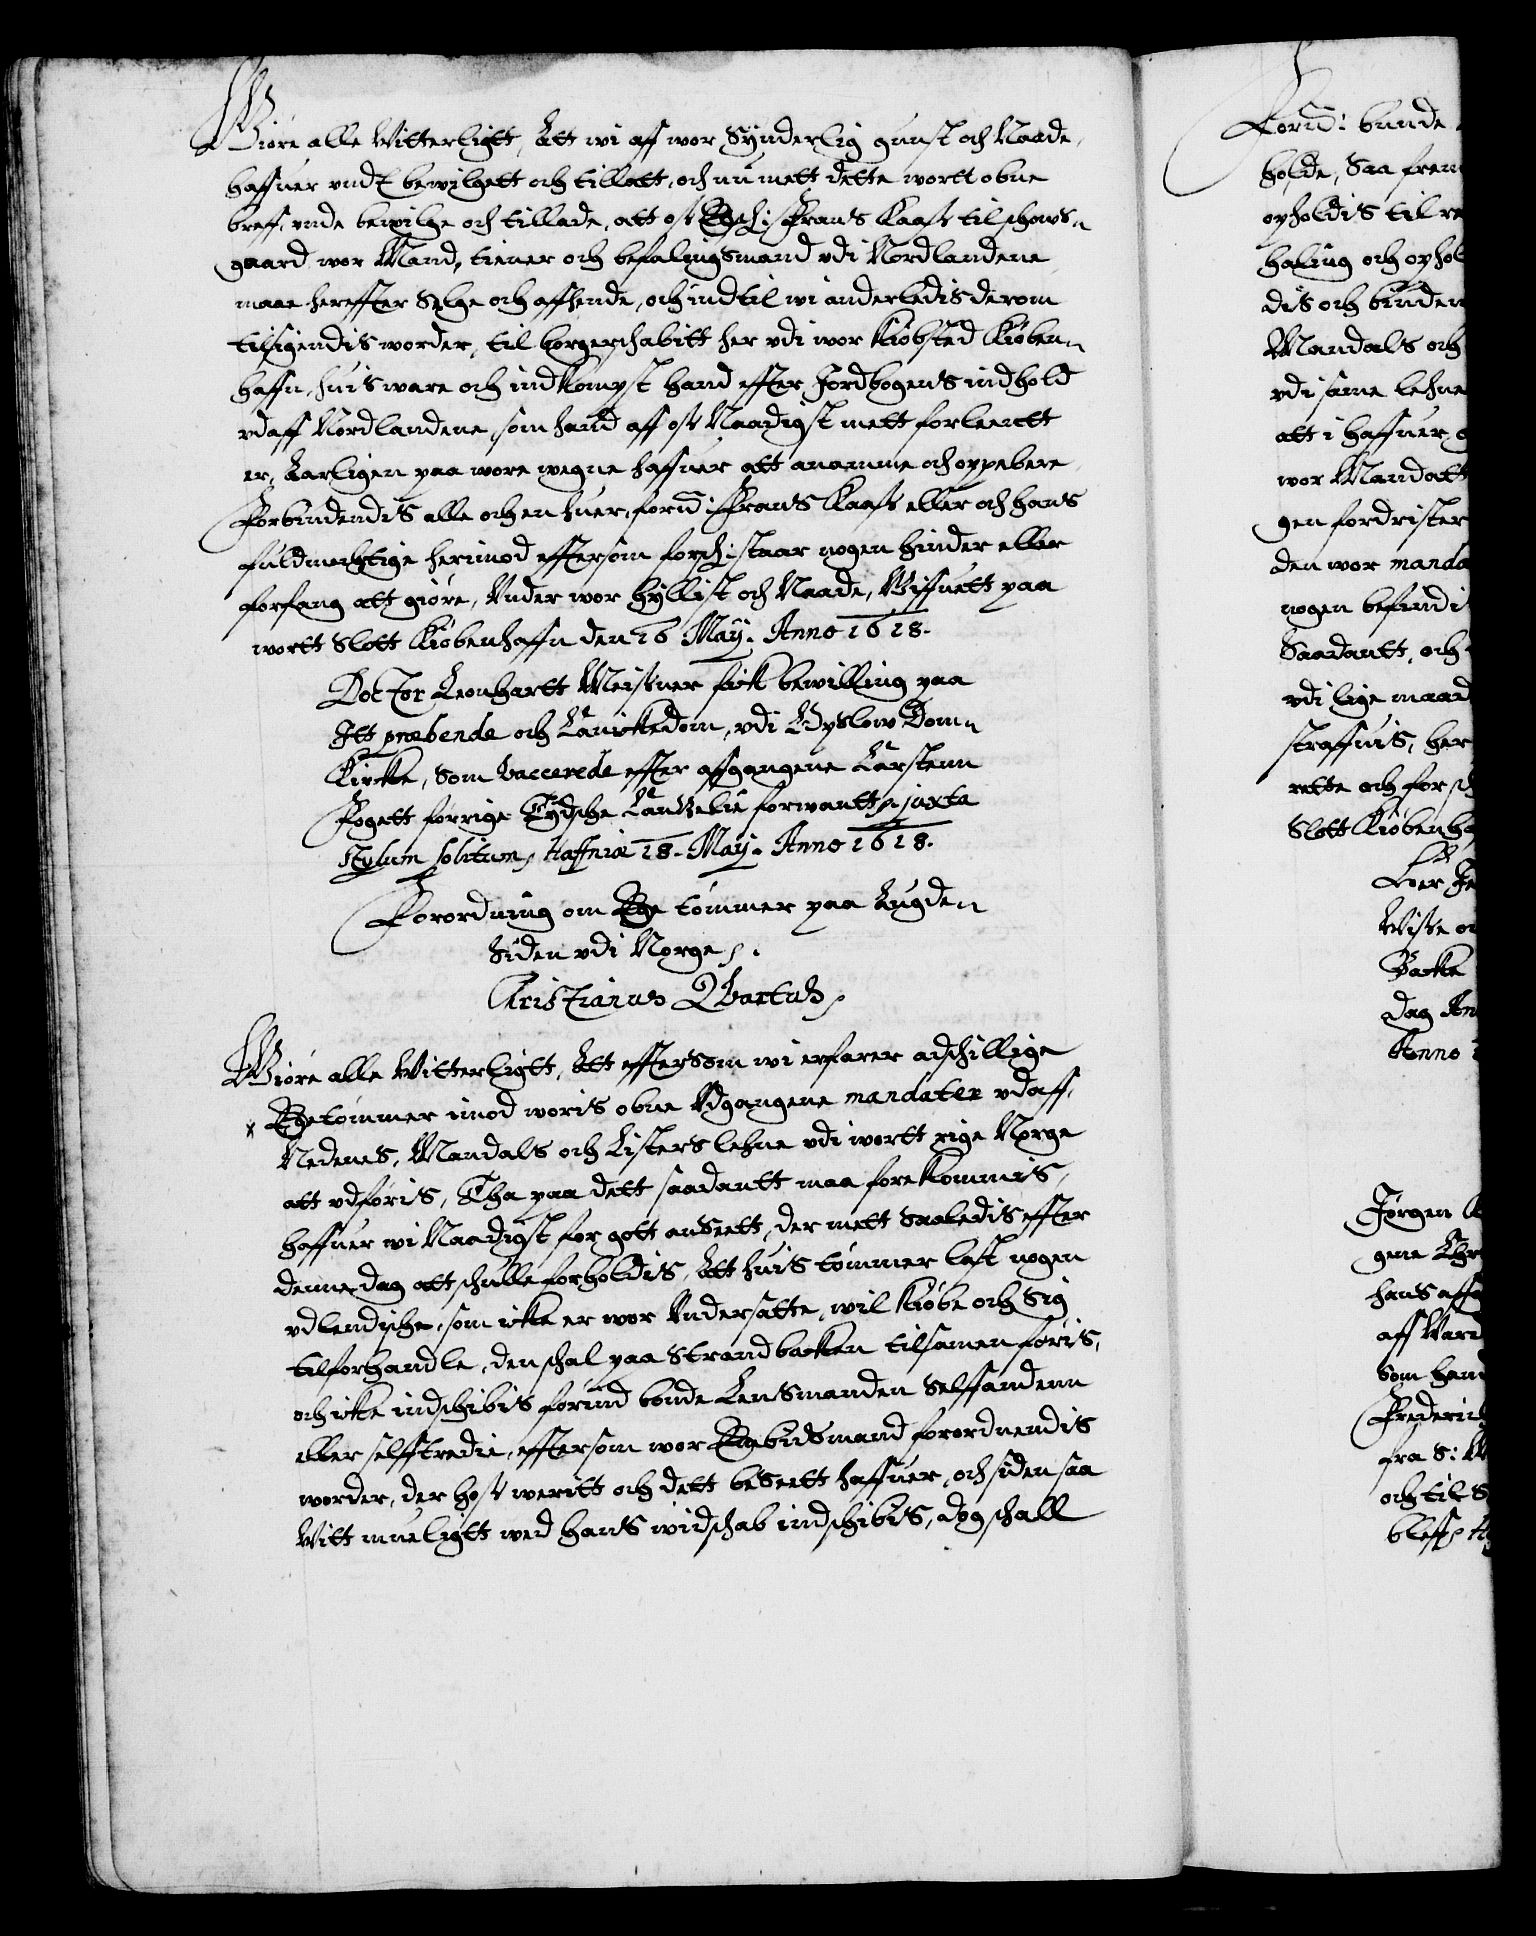 Giøre alle Witterligtt, Att wi aff wor Synderlig gunst och Naade,
haffuer undt bewilgett och tilladt, och nu mett dette wortt obne
breff, unde bewilge och tillade, att os Elsch: Frans Kaass til schous-
gaard wor Mand, tiener och befalingsmand udi Nordlandene
maae hereffter Selge och affhende, och indtil wi anderledis derom
tilsigendis worder, til borgerschabitt her udi wor Kiøbsted Kiøben-
haffn, huis ware och indkompst hand effter Jordbogens indhold
udaff Nordlandene, som hand aff os Naadigst mett forleentt
er, Aarligen paa wore wegne haffuer att anamme och oppebere
Forbiudendis alle och en huer, forn: Frans Kaass eller och hans
fuldmechtige herimod effter som forsch: staar nogen hinder eller
forfang att giøre, Under wor hyllist och Naade, Giffuett paa
wortt Slott Kiøbenhaffn den 16 May. Anno 1618.
Doctor Leonhartt Meisner fick bewilling paa
Itt præbende och Canickedom, udi Opslow Dom-
Kircke, Som vaccerede effter affgangene Carstenn
Fogett forrige Tydsche Cantzelie forwantt, juxta
stylum solitum, Haffniæ 18. May. Anno 1618.
Forordning om Ege tømmer paa Augde-
siden udi Norge.
Christianus Qvartus,
Giøre alle Witterligtt, Att efftersom wi erfarer adschillige
Ege tømmer imod woris obne Udgangene mandater udaff,
Nedenes, Mandals och Listers lehne udi wortt rige Norge
att udføris, Tha paa dett saadantt maa forekommis,
haffuer wi Naadigst for gott anseett, der mett saaledis effter
denne dag att schulle forholdis, Att huis tømmer last nogen
udlendische, som icke er wor Undersatte, wil Kiøbe och Sig
tilforhandle, den schal paa Strandbacken tilsamen føris,
och icke indschibis førind bonde Lensmanden Selffandenn
eller selfftredie, efftersom wor Egebudsmand forordnendis
worder, der hos weritt och dett beseett haffuer, och siden saa
Witt mueligtt wed hans widschab indschibis, dog schall
Forn: bunde
holde, Saa frem
opholdis til re
haling och ophol
dis och binden
Mandals och
udi same lehne
att i haffuer
wor Mandatt
gen fordrister
den wor manda
nogen befindi
Saadantt, och
udi lige maad
straffuis, her
rette och for sch
Slott Kiøbenha
Her Je
Wisse o
Backe
dag An
Anno
Jørgen
gene Chr
hans affg
aff Ward
Som hand
Frederich
fra S:
och til S
bleff, H